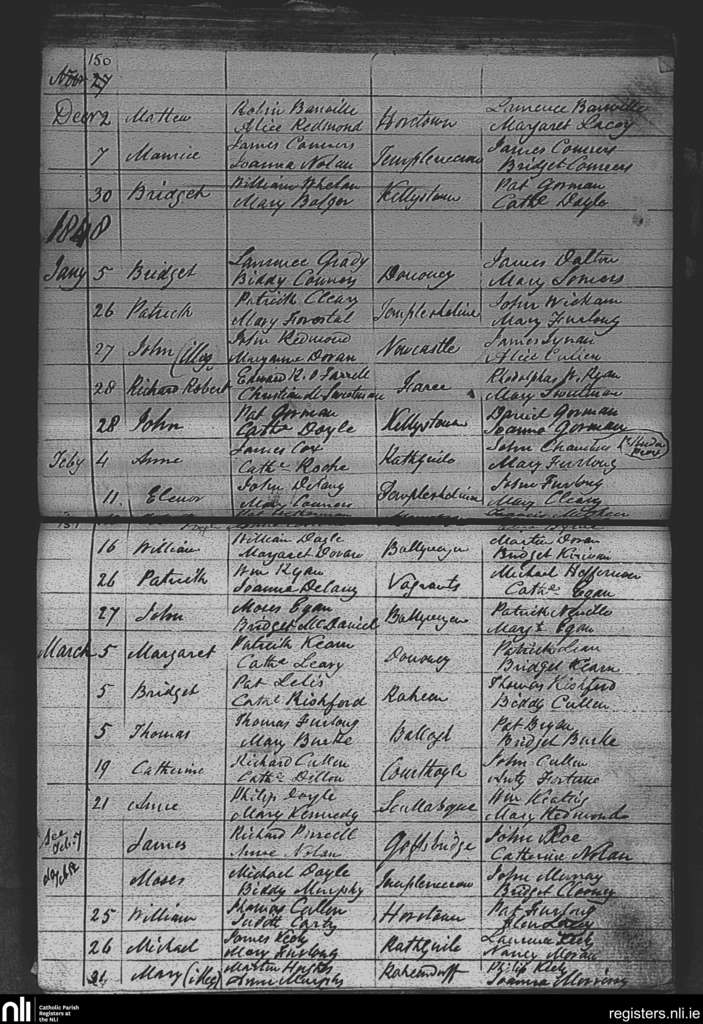 150
Novr 27
Decr 2 Mathew Robin Banville Horetown Lawrence Banville
Alice Redmond Margaret Lacey
7 Maurice James Connors James Connors
Joanna Nolan Bridget Connors
30 Bridget William Whelan Kellystown Pat Gorman
Mary Bolger Cathe Doyle
1848
Jany 5 Bridget Lawrence Grady Donooney James Dalton
Biddy Connors Mary Somers
26 Patrick Patrick Cleary Templeshelina John Wickam
Mary Forestal Mary Furlong
27 John (illeg John Redmond Newcastle James Synan
Maryanne Doran Alice Cullen
28 Richard Robert Edward R. O Farrell Rhodolphus H. Ryan
Christian M. Sweetman Mary Sweetman
28 John Pat Gorman Kellystown Daniel Gorman
Cathe Doyle Joanna Gorman
Feby 4 Anne James Cox Rathguile John
Cathe Roche Mary Furlong
11. Elenor John Delany Templeshelina John Furlong
Mary Connors Mary Cleary
16 William William Doyle Martin Doran
Margaret Doran Bridget Kirivan
26 Patrick Wm Ryan Vagrants Michael Heffernan
Joanna Delany Cathe Egan
27 John Moses Egan Patrick
Bridget McDaniel Margt Egan
March 5 Margaret Patrick Kearn Donooney Patrick
Cathe Leary Bridget Kearn
5 Bridget Pat Raheen Thomas Kishford
Cathe Kishford Biddy Cullen
5 Thomas Thomas Furlong Pat Bryan
Mary Burke Bridget Burke
19 Catherine Richard Cullen Courthoyle John Cullen
Cathe Dillon Anty Fortune
21 Anne Philip Doyle Scullabogue Wm Keating
Mary Kennedy Mary Redmond
See Feb. 7 James Richard Purcell Goffsbridge John Roe
Anne Nolan Catherine Nolan
Moses Michael Doyle John Murray
Biddy Murphy Bridget Clooney
25 William Thomas Cullen Horetown Pat Furlong
Judith Carty Ellen Lacey
26 Michael James Kely Rathguile Laurence Kely
Mary Furlong Nancy Moran
Mary (illeg) Martin Hughes Raheenduff Philip Kely
Anne Murphy Joanna
nli Catholic Parish
Registers at
the NLI
registers.nli.ie